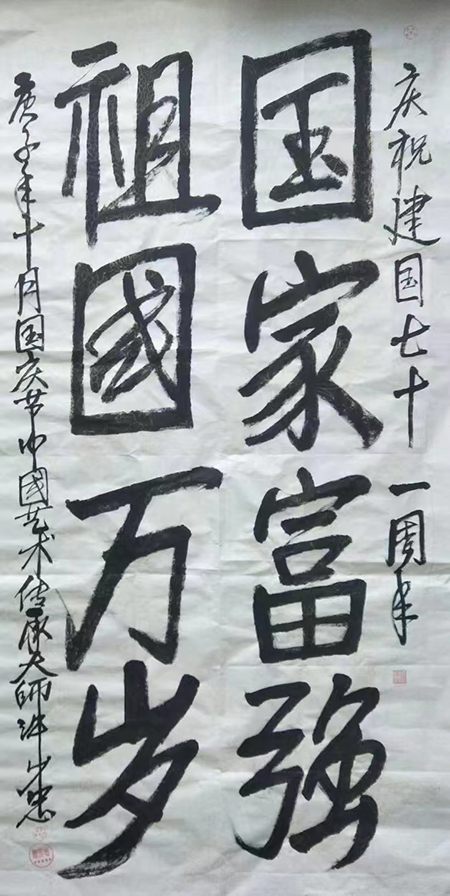 庆祝建国七十一周年
国家富强
祖國万岁
庚子年十月国庆节中國艺术传承大师许